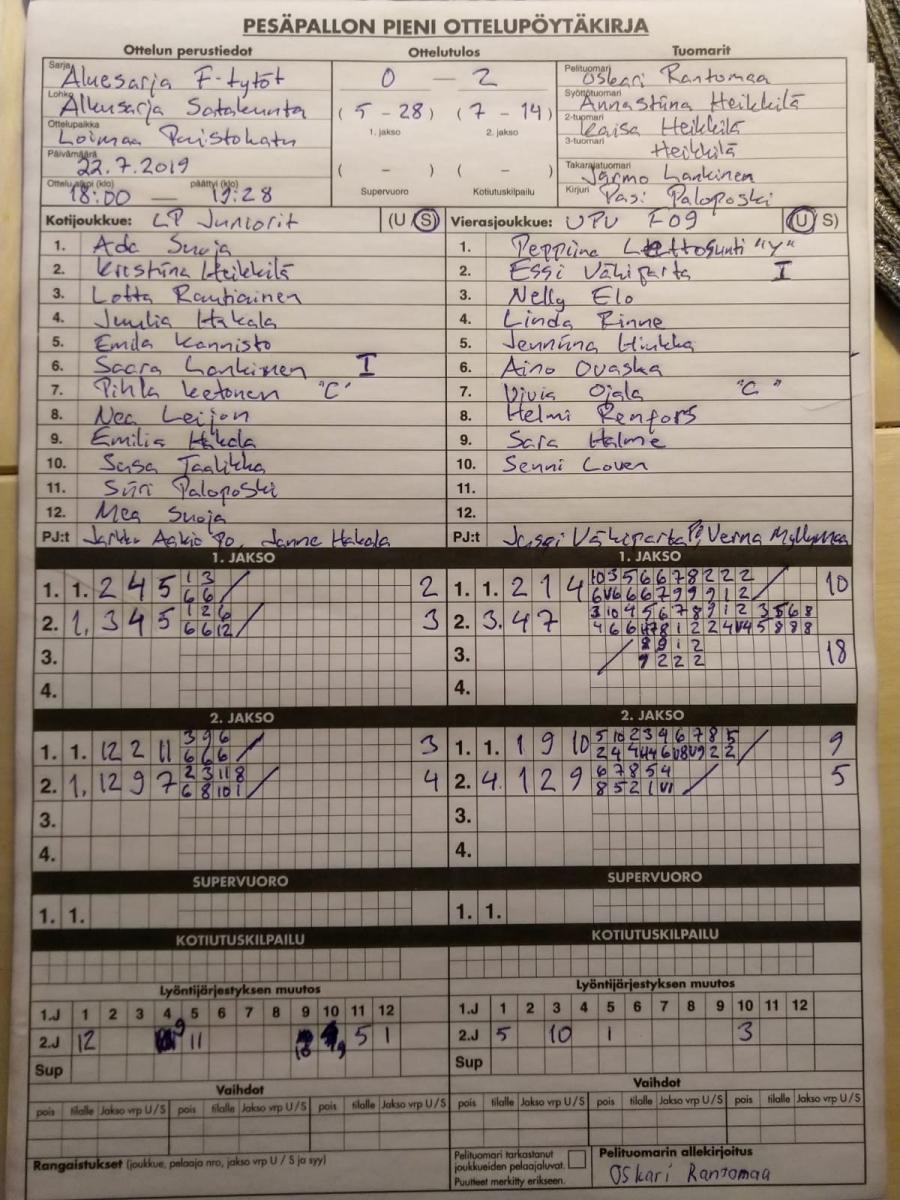 PESÄPALLON PIENI OTTELUPÖYTÄKIRJA
Ottelun perustiedot Ottelutulos Tuomarit
Sarja Aluesarja F-tytöt
Lohko Alkusarja Satakunta
Ottelupaikka Loimaa Puistokatu
Päivämäärä 22.7.2019
Ottelu alkoi (klo) päättyi (klo)
18:00 — 19:28
0 — 2
(5 - 28) (7 - 14)
1. jakso 2. jakso
( - ) ( - )
Supervuoro Kotiutuskilpailu
Pelituomari Oskari Rantomaa
Syöttötuomari Annastiina Heikkilä
2-tuomari Kaisa Heikkilä
3-tuomari Heikkilä
Takarajatuomari Jarmo Lankinen
Kirjuri Pasi Paloposki
Kotijoukkue: LP Juniorit (U S)
1. Ada Suoja
2. Kristiina Heikkilä
3. Lotta Rautiainen
4. Juulia Hakala
5. Emila Kannisto
6. Saara Lankinen I
7. Pihla Ketonen "C"
8. Nea Leijon
9. Emilia Hakala
10. Sasa Jaalikka
11. Siiri Paloposki
12. Mea Suoja
PJ:t Jarkko Aakio PJ, Janne Hakala
Vierasjoukkue: UPV F09 (U S)
1. Peppiina "Y"
2. Essi Vähiparta I
3. Nelly Elo
4. Linda Rinne
5. Jenniina Hiukka
6. Aino Ovaska
7. Viivia Ojala "C"
8. Helmi Renfors
9. Sara Halme
10. Senni Loven
11.
12.
PJ:t Jussi Vähäparta PJ, Verna Myllymaa
1. JAKSO
1. 1. 2 4 5 1 3 2
6 6
2. 1. 3 4 5 1 2 6 3
6 6 12
3.
4.
1. JAKSO
1. 1. 2 1 4 10 3 5 6 6 7 8 2 2 2 10
2. 3. 4 7 3 10 4 5 6 7 8 9 1 2 3 5 6 8
3. 8 9 1 2 18
9 2 2 2
4.
2. JAKSO
1. 1. 12 2 11 3 9 6 3
6 6 6
2. 1. 12 9 7 2 3 11 8 4
6 8 10 1
3.
4.
2. JAKSO
1. 1. 1 9 10 5 10 2 3 4 6 7 8 5 9
2. 4. 1 2 9 6 7 8 5 4 5
8 5 2 1 V1
3.
4.
SUPERVUORO SUPERVUORO
1. 1. 1. 1.
KOTIUTUSKILPAILU KOTIUTUSKILPAILU
Lyöntijärjestyksen muutos
1.J 1 2 3 4 5 6 7 8 9 10 11 12
2.J 12 9 11 10 9 5 1
Sup
Lyöntijärjestyksen muutos
1.J 1 2 3 4 5 6 7 8 9 10 11 12
2.J 5 10 1 3
Sup
Vaihdot
pois tilalle Jakso vrp U/S pois tilalle Jakso vrp U/S pois tilalle Jakso vrp U/S
Vaihdot
pois tilalle Jakso vrp U/S pois tilalle Jakso vrp U/S pois tilalle Jakso vrp U/S
Rangaistukset (joukkue, pelaaja nro, jakso vrp U / S ja syy)
Pelituomari tarkastanut
joukkueiden pelaajaluvat.
Puutteet merkitty erikseen.
Pelituomarin allekirjoitus
Oskari Rantomaa